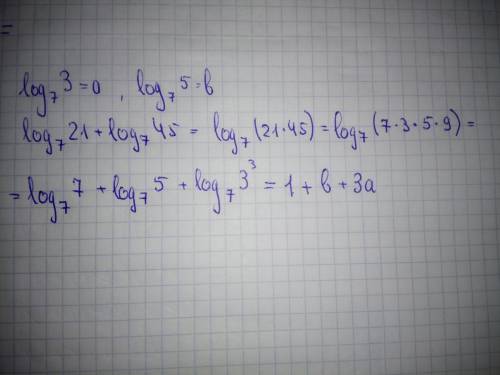 =
log₇3=0, log₇5=b
log₇21+log₇45 = log₇(21·45)=log₇(7·3·5·9)=
=log₇7+log₇5+log₇3³=1+b+3a